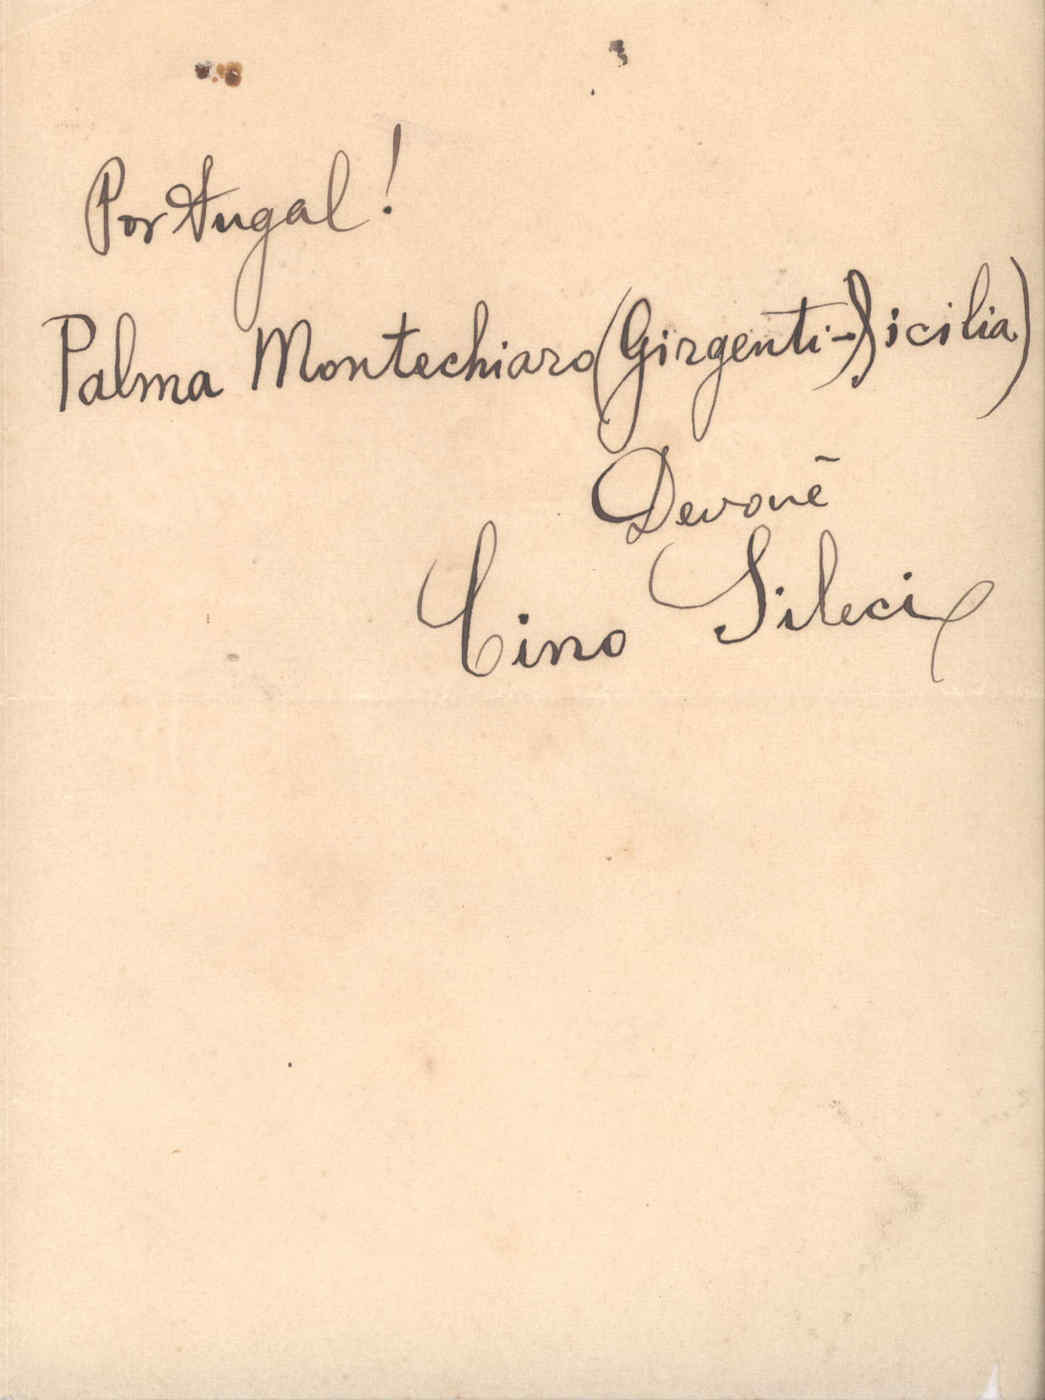 Portugal!
Palma Montechiaro (Girgenti-Sicilia)
Devouē
Cino Sileci